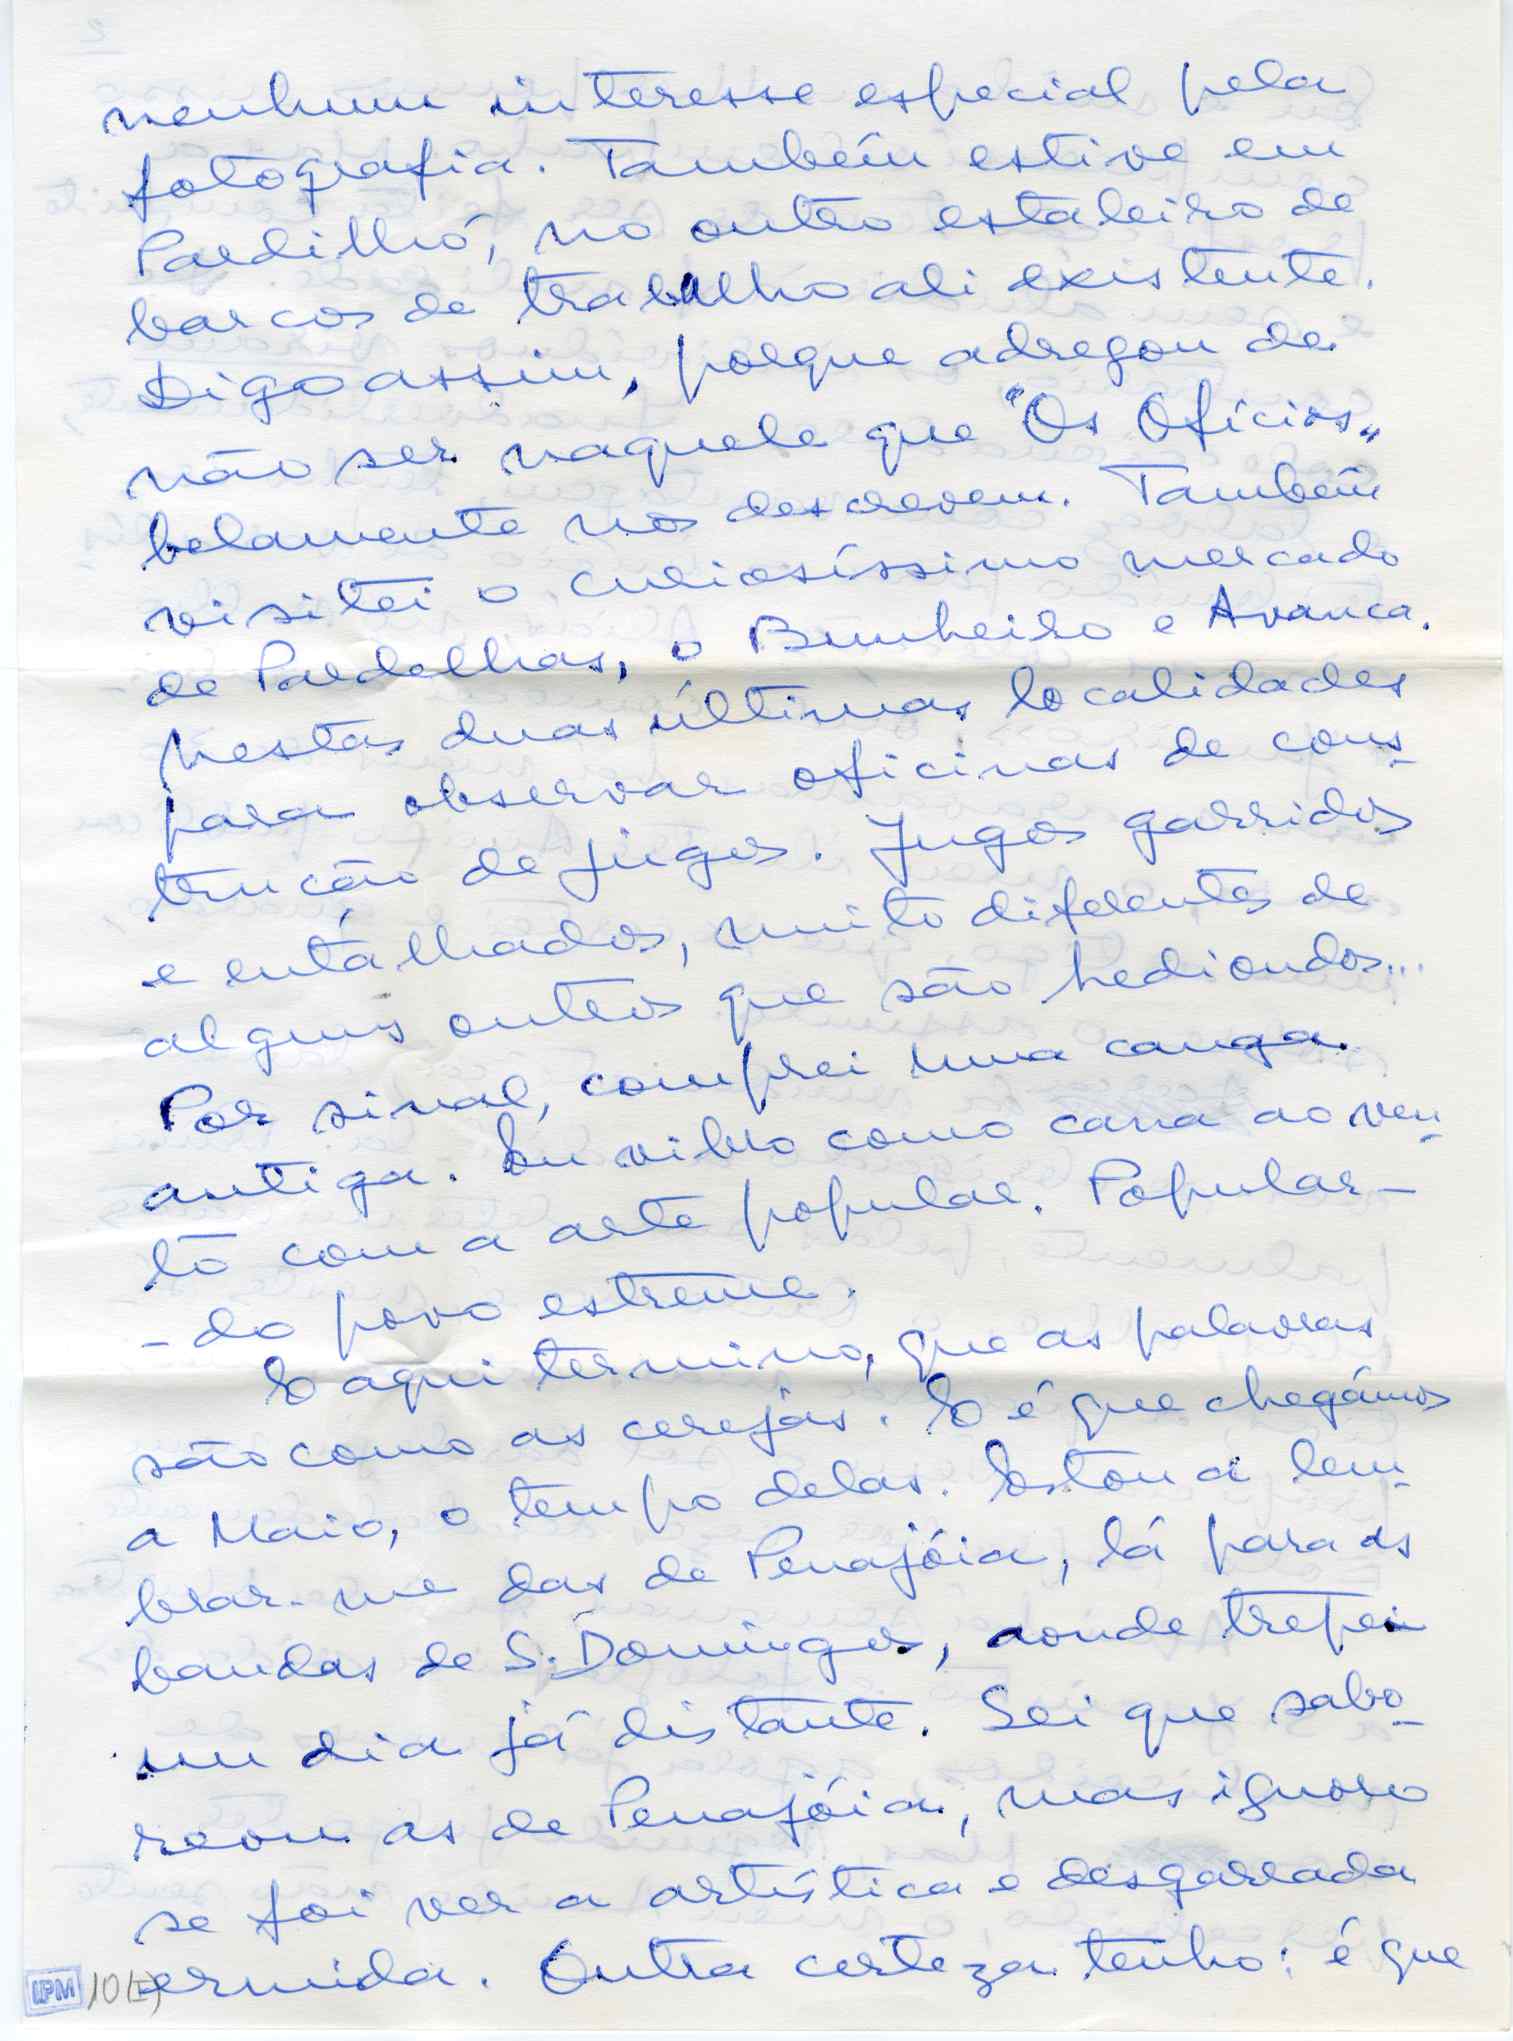 nenhum interesse especial pela
fotografia. Também estive em
Pardilhó, no outro estaleiro de
barcos de trabalho ali existente.
Digo assim, porque adregou de
não ser naquele que "Os Ofícios"
belamente nos descrevem. Também
visitei o curiosíssimo mercado
de Pardelhas, o Bunheiro e Avanca.
Nestas duas últimas localidades
para observar oficinas de cons-
trução de jugos. Jugos garridos
e entalhados, muito diferentes de
alguns outros que são hediondos...
Por sinal, comprei uma canga
antiga. Eu vibro como cana ao ven-
to com a arte popular. Popular-
-do povo estreme.
E aqui termino, que as palavras
são como as cerejas. E é que chegámos
a Maio, o tempo delas. Estou a lem-
brar-me das de Penajóia, lá para as
bandas de S. Domingos, aonde trepei
um dia já distante. Sei que sabo-
reou as de Penajóia, mas ignoro
se foi ver a artística e desgarrada
ermida. Outra certeza tenho: é que
10(I)